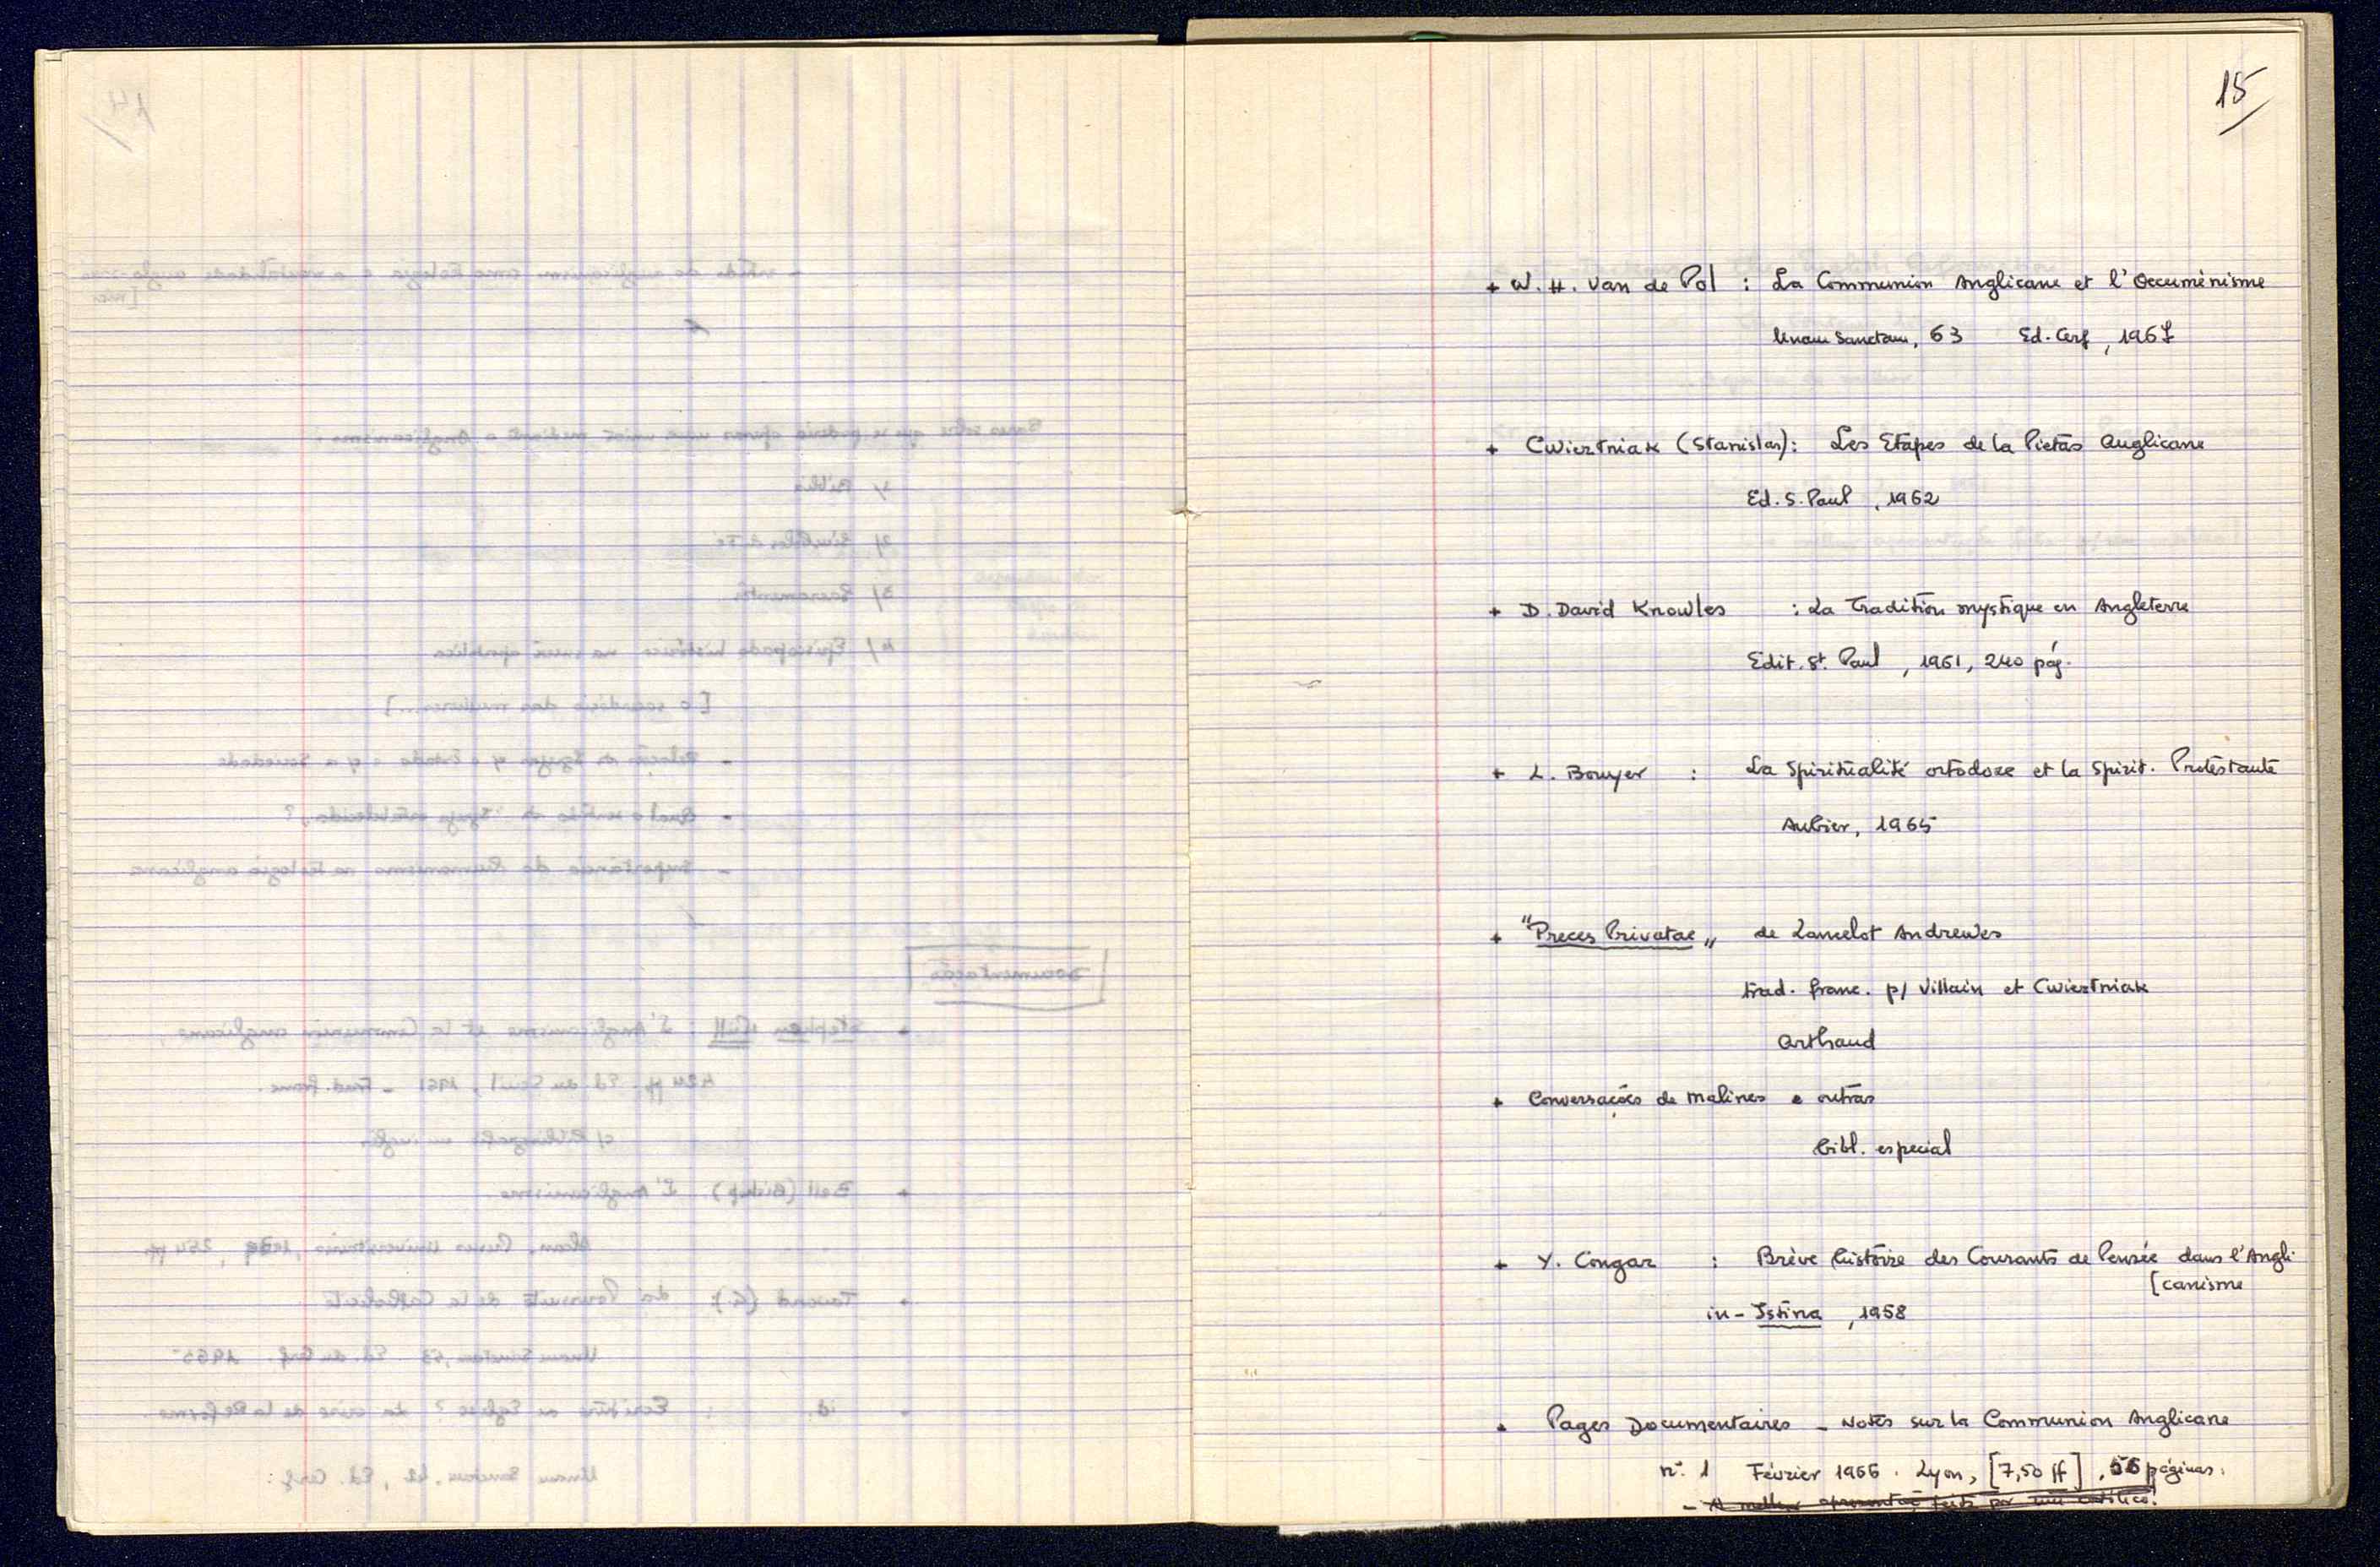 15
+ W. H. Van de Pol : La Communion Anglicane et l'Oecuménisme
Unam Sanctam, 63 Ed. Cerf, 1967
+ Cwiertniak (Stanislas): Les Etapes de la Pietas Anglicane
Ed. S. Paul, 1962
+ D. David Knowles : La Tradition mystique en Angleterre
Edit. St. Paul, 1961, 240 pág.
+ L. Bouyer : La Spiritualité ortodoxe et la Spirit. Protestante
Aubier, 1965
+ "Preces Privatae" de Lancelot Andrewes
trad. franc. p/ Villain et Cwiertniak
Arthaud
+ Conversações de Malines e outras
bibl. especial
+ Y. Congar : Brève histoire des Courants de Pensée dans l'Angli
[canisme
in - Istina, 1958
+ Pages Documentaires - Notes sur la Communion Anglicane
nº 1 Février 1966. Lyon, [7,50 ff], 56 páginas.
- A melhor apresentaç. feita por um católico!